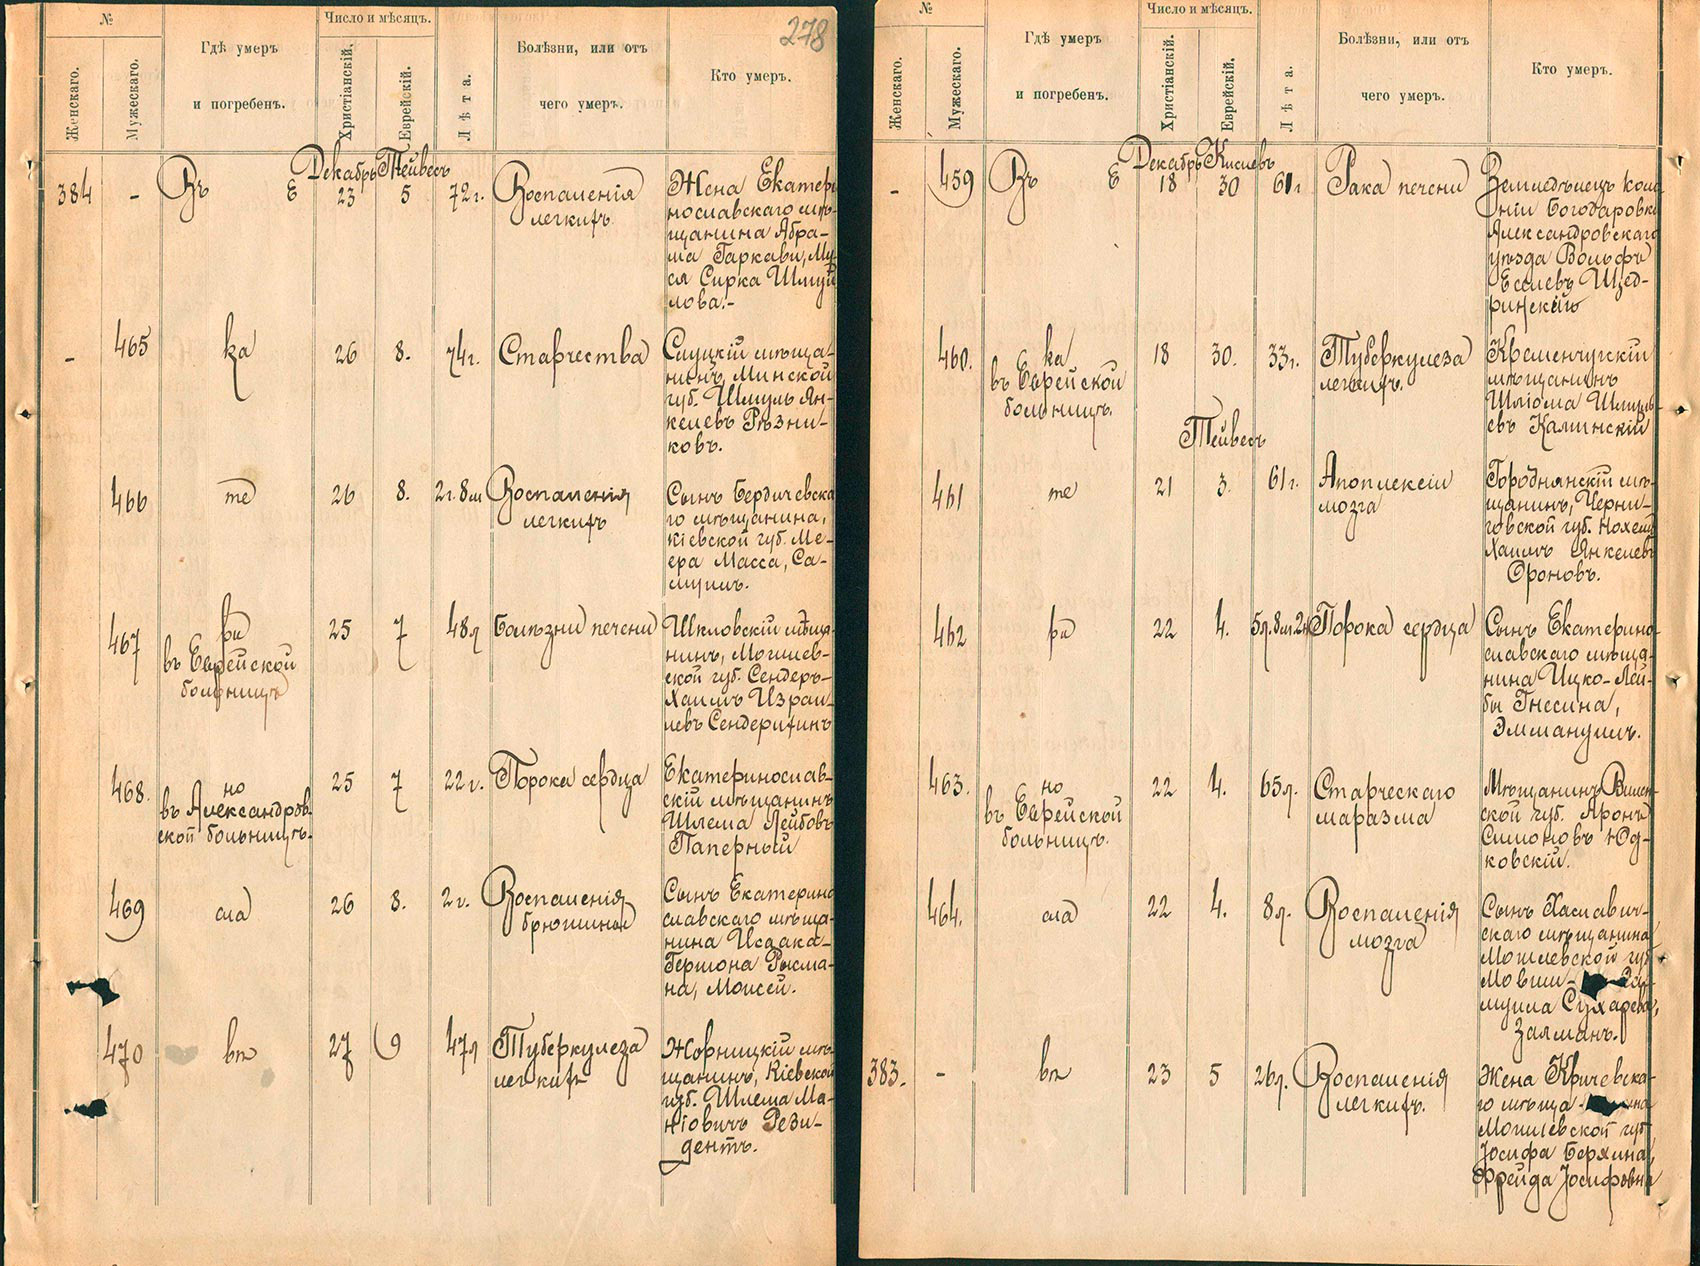 №
Число и мѣсяцъ.
278
Женскаго.
Мужескаго.
Гдѣ умеръ
и погребенъ.
Христіанскій.
Еврейскій.
Лѣта.
Болѣзни, или отъ
чего умеръ.
Кто умеръ.
Декабрь Тейвесъ
384 - Въ Е 23 5 72 г. Воспаленія
легкихъ
Жена Екатери
нославскаго мѣ-
щанина Абра-
ма Гаркави, Му-
ся Сирка Шмуй
лова.-
- 465 ка 26 8. 74 г. Старчества
Слуцкій мѣща-
нинъ, Минской
губ. Шмуль Ян-
келевъ Рѣзни-
ковъ.
466 те 26 8. 2 г. 8 м Воспаленія
легкихъ
Сынъ Бердичевска
го мѣщанина,
Кіевской губ. Ме-
ера Масса, Са-
муилъ.
467 ри
въ Еврейской
больницѣ
25 7 48 л Болѣзни печени
Шкловскій мѣща-
нинъ, Могилев-
ской губ. Сендеръ-
Хаимъ Израи-
левъ Сендерихинъ
468. но
въ Александров-
ской больницѣ.
25 7 22 г. Порока сердца
Екатеринослав-
скій мѣщанинъ
Шлема Лейбовъ
Паперный
469 сла 26 8. 2 г. Воспаленія
брюшины
Сынъ Екатерино
славскаго мѣща-
нина Исаака-
Гершона Рысма-
на, Моисей.
470 вѣ 27 9 47 л Туберкулеза
легкихъ
Жорницкій мѣ-
щанинъ, Кіевской
губ. Шлема Ма-
ніовичъ Рези-
дентъ.
№
Число и мѣсяцъ.
Женскаго.
Мужескаго.
Гдѣ умеръ
и погребенъ.
Христіанскій.
Еврейскій.
Лѣта.
Болѣзни, или отъ
чего умеръ.
Кто умеръ.
Декабрь Кислевъ
- 459 Въ Е 18 30 61 г Рака печени
Земледѣлецъ коло
ніи Богодаровки
Александровскаго
уѣзда Вольфъ
Еселевъ Щед-
ринскій
460. ка
въ Еврейской
больницѣ.
18 30. 33 г. Туберкулеза
легкихъ.
Кременчугскій
мѣщанинъ
Шліома Шмуль
евъ Калинскій
Тейвесъ
461 те 21 3. 61 г. Апоплексіи
мозга
Городнянскій мѣ-
щанинъ, Черни-
говской губ. Нохемъ
Хаимъ Янкелевъ
Ороновъ.
462 ри 22 4. 5 л. 8 м. 2 н Порока сердца
Сынъ Екатерино-
славскаго мѣща-
нина Ицко-Лей-
бы Гнесина,
Эммануилъ.
463. но
въ Еврейской
больницѣ.
22 4. 65 л. Старческаго
маразма
Мѣщанинъ Вилен-
ской губ. Аронъ
Симоновъ Юд-
ковскій.
464. сла 22 4. 8 л. Воспаленія
мозга
Сынъ Хаславич-
скаго мѣщанина
Могилевской губ
Мовши-
муила Сухарева,
Залманъ.
383. - вѣ 23 5 26 л. Воспаленія
легкихъ.
Жена Кричевска-
го мѣща-
Могилевской губ
Іосифа Берлина,
Фрейда Іосифовна